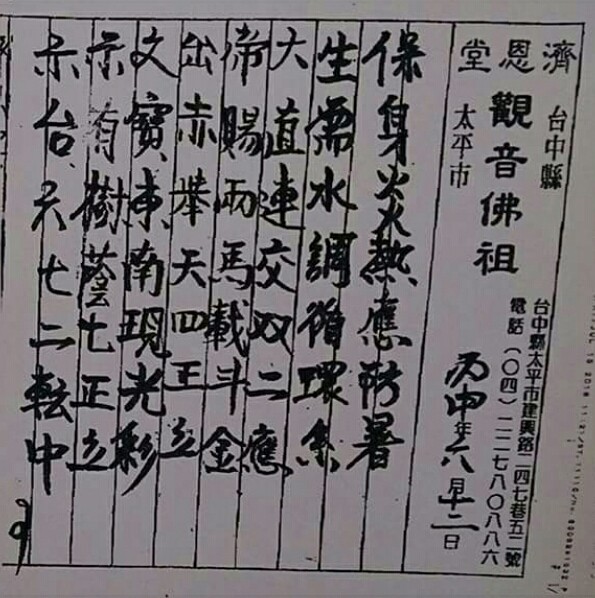 濟恩堂
台中縣
太平市
觀音佛祖
台中縣太平市建興路二四七巷五二號
電話(〇四)二二七八〇八八六
丙申年六月十二日
保身炎熱應防暑
生需水調循環系
大直連交双二應
帝賜兩馬載斗金
出赤天四王立
文寶東南現光彩
示有樹蔭七正立
示台天七二転中